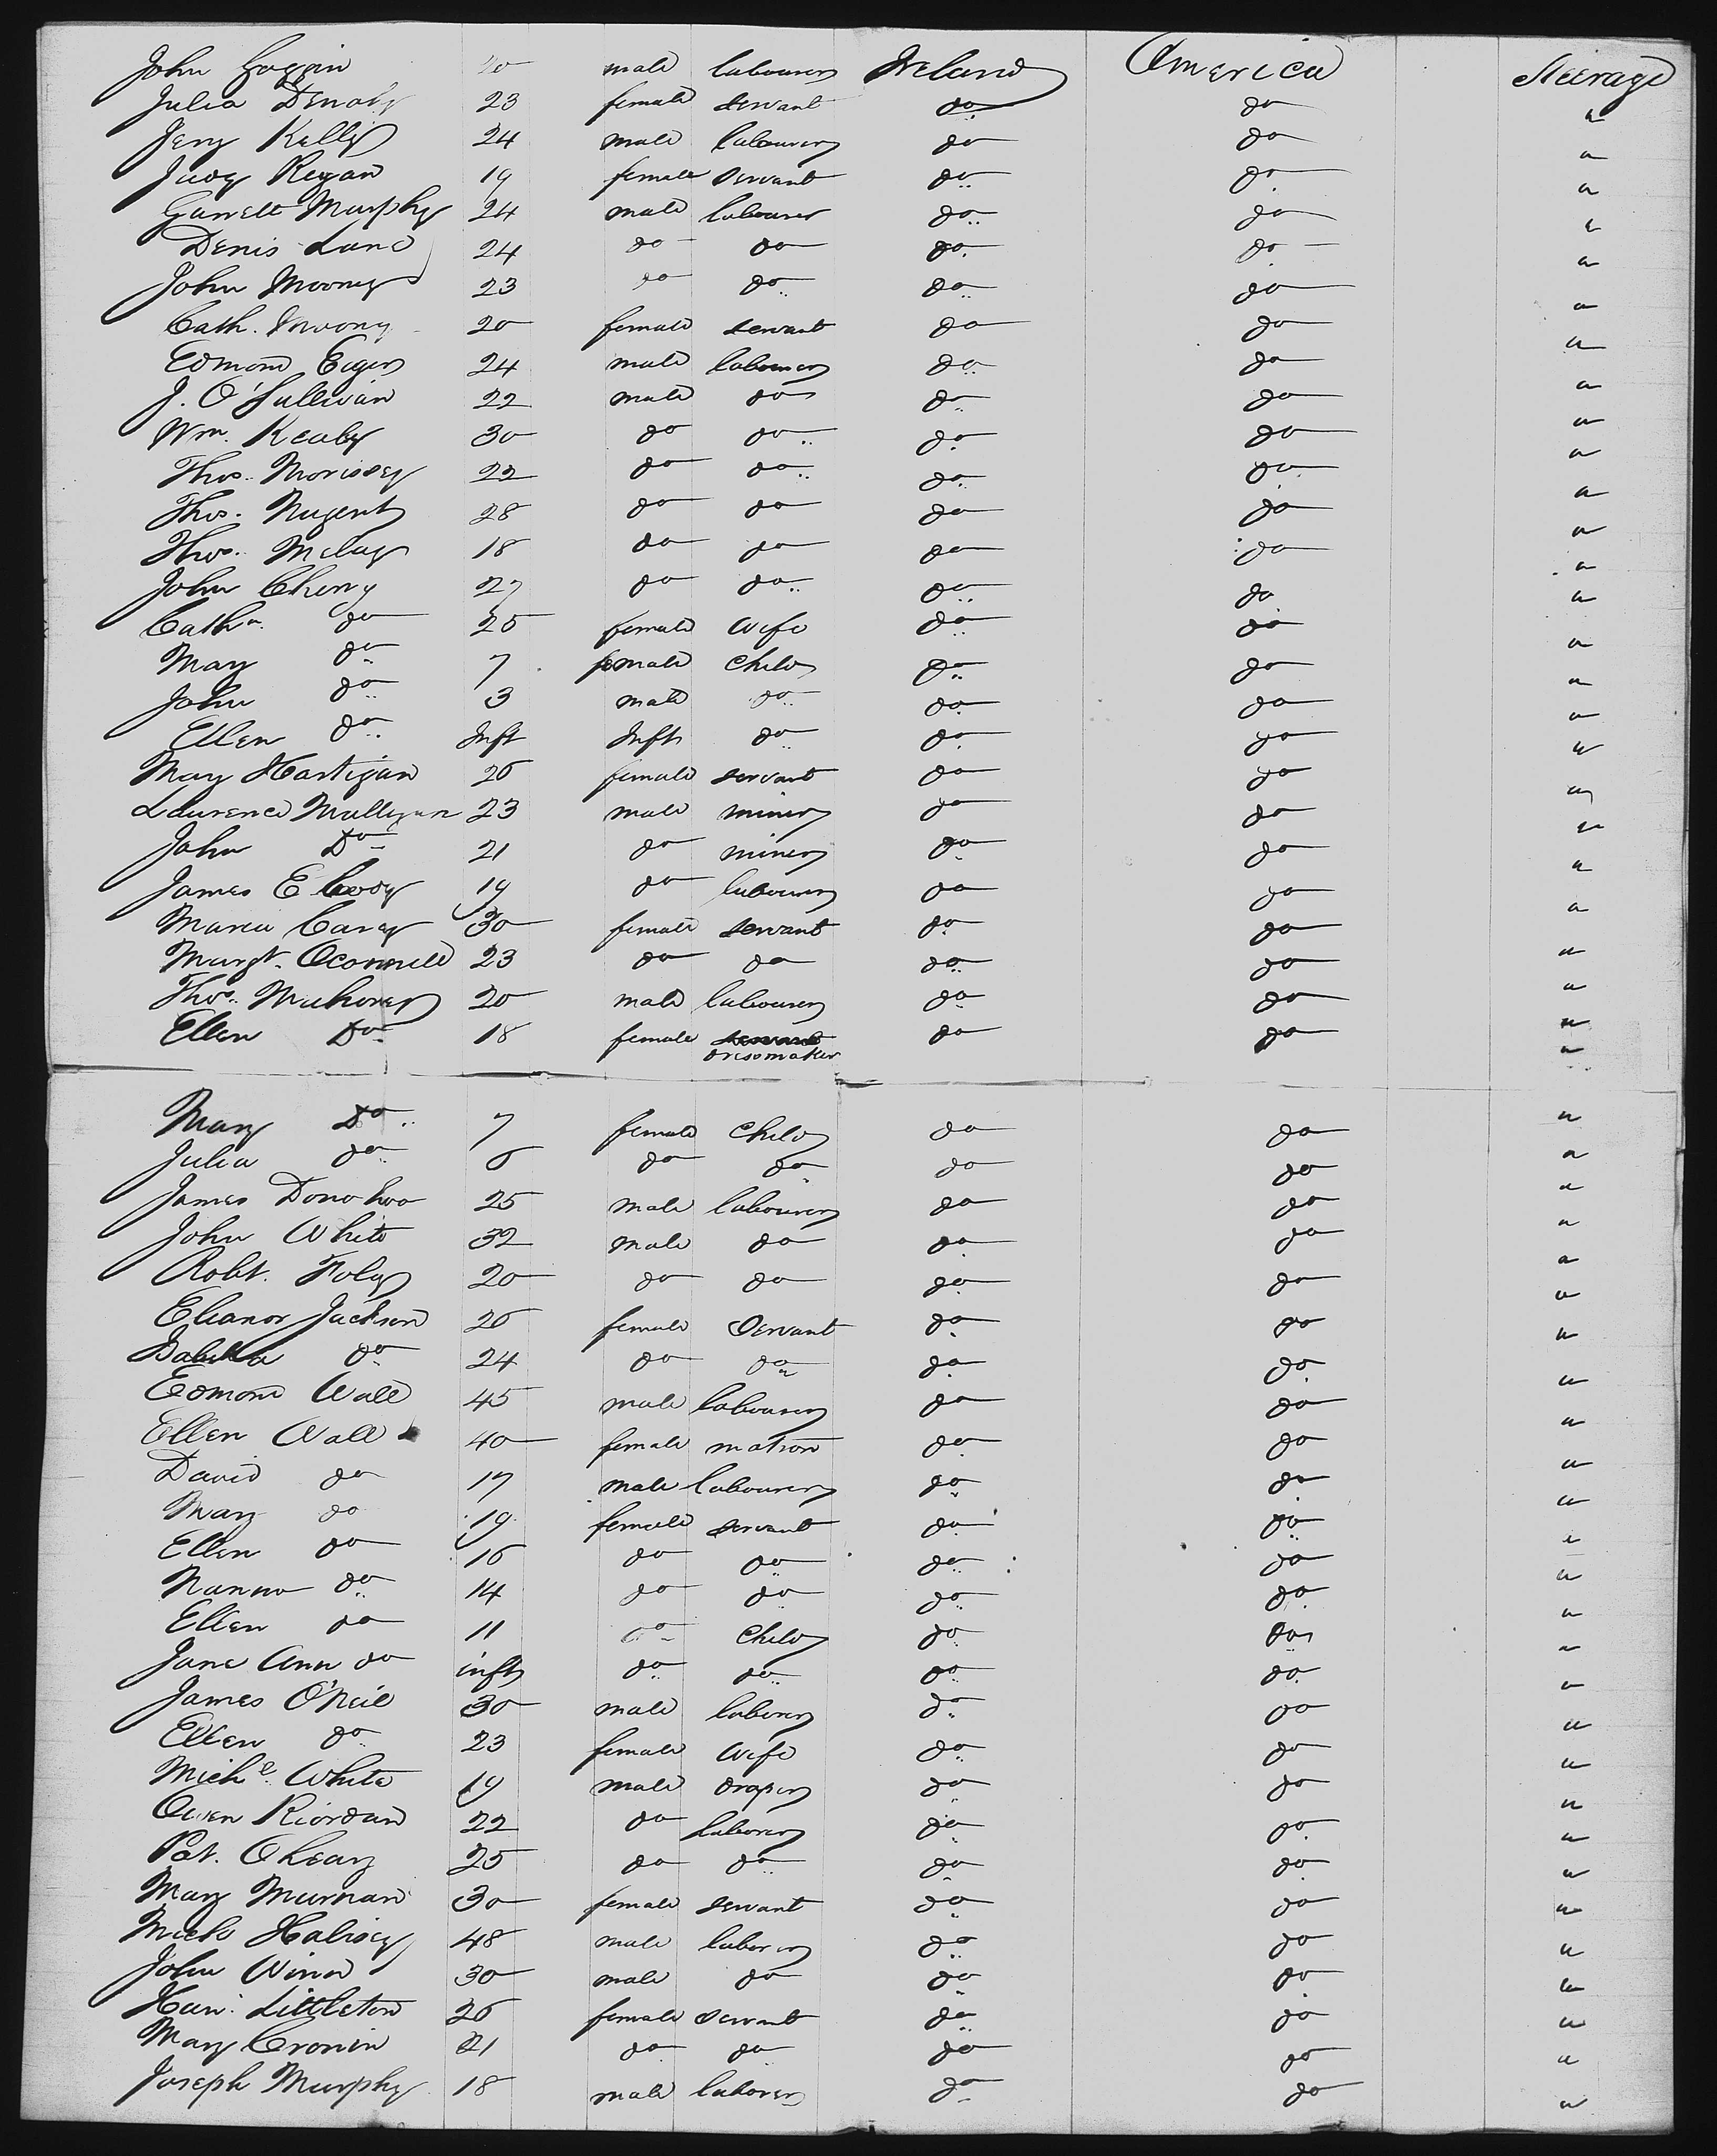 John Goggin 20 male labourer Ireland America Steerage
Julia 23 female servant do do "
Jery Kelly 24 male labourer do do "
Judy Regan 19 female servant do do "
Garrett Murphy 24 male labourer do do "
Denis Lane 24 do do do do "
John Moony 23 do do do do "
Cath. Moony 20 female servant do do "
Edmond 24 male labourer do do "
J. O'Sullivan 22 male do do do "
Wm. Kealy 30 do do do do "
Thos. Morissey 22 do do do do "
Thos. Nugent 28 do do do do "
Thos. 18 do do do do "
John Cherry 27 do do do do "
Cathn. do 25 female Wife do do "
Mary do 7 female Child do do "
John do 3 male do do do "
Ellen do Inft Inft do do do "
Mary Hartigan 26 female servant do do "
Laurence Mulligan 23 male miner do do "
John Do 21 do miner do do "
James E 19 do labourer do do "
Maria Carey 30 female servant do do "
Margt. Oconnell 23 do do do do "
Thos. Mahoney 20 male labourer do do "
Ellen Do 18 female servant do do "
dressmaker "
Mary Do 7 female Child do do "
Julia do 6 do do do do "
James Donohoo 25 male labourer do do "
John White 32 male do do do "
Robt. Foley 20 do do do do "
Eleanor Jackson 26 female Servant do do "
Isabella do 24 do do do do "
Edmond Wall 45 male labourer do do "
Ellen Wall 40 female matron do do "
David do 17 male labourer do do "
Mary do 19 female servant do do "
Ellen do 16 do do do do "
do 14 do do do do "
Ellen do 11 do Child do do "
Jane Ann do inft do do do do "
James O'Neil 30 male laborer do do "
Ellen do 23 female Wife do do "
Michl. White 19 male draper do do "
Owen Riordan 22 do laborer do do "
Pat. Oleary 25 do do do do "
Mary Murnan 30 female servant do do "
48 male laborer do do "
John Winn 30 male do do do "
Han: Littleton 26 female servant do do "
Mary Cronin 21 do do do do "
Joseph Murphy 18 male laborer do do "